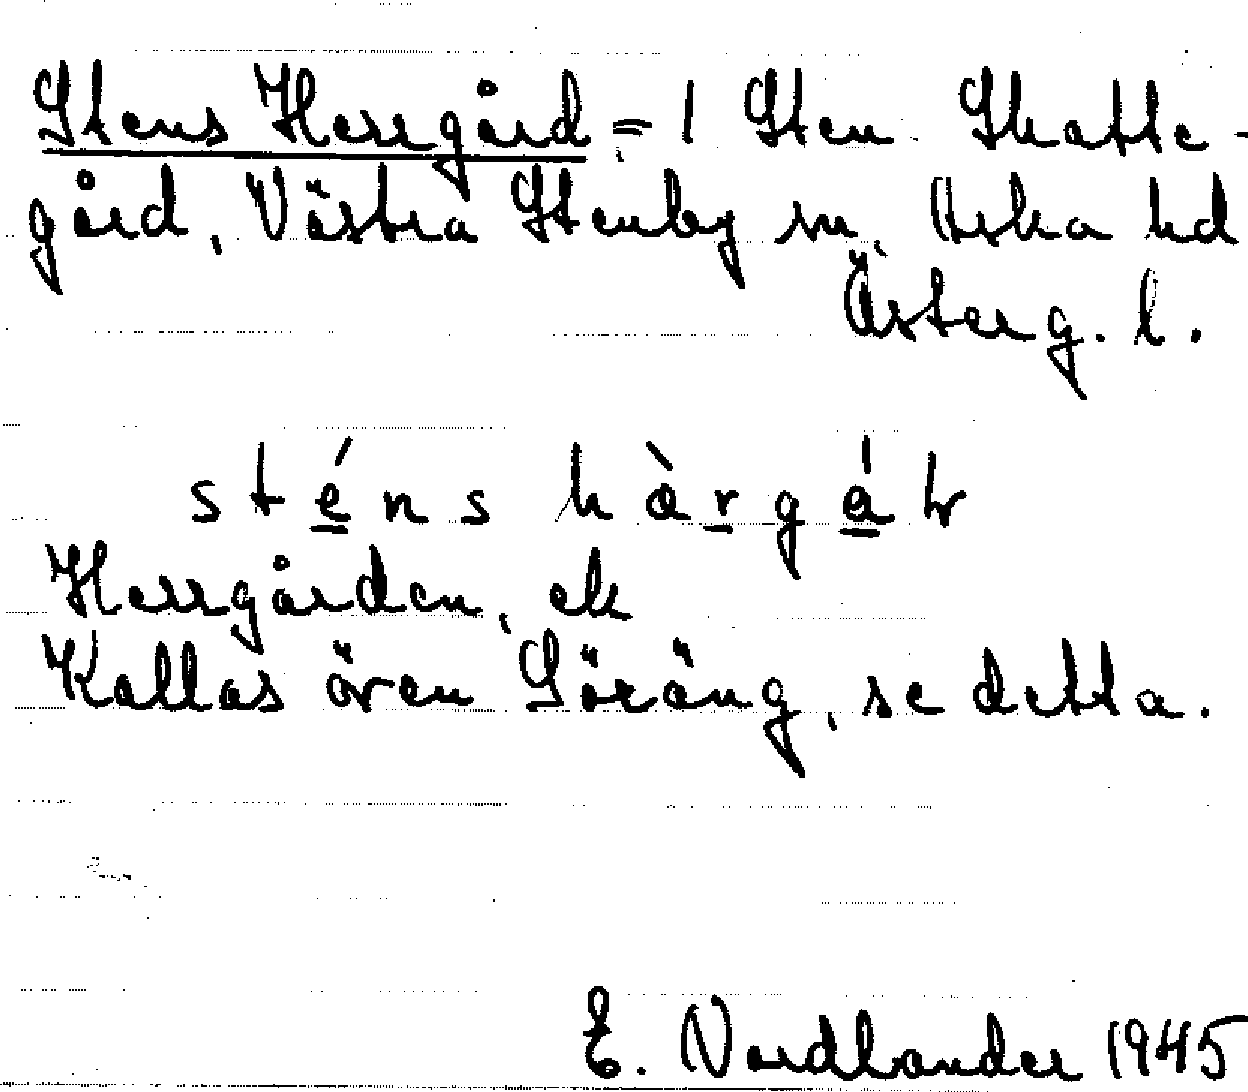 Stens Herrgård = 1 Sten Skatte-
gård, Västra Stenby sn, Aska hd
Österg. l.
sténs hàrgá
Herrgården, ek
Kallas även Söräng, se detta.
E. Nordlander 1945